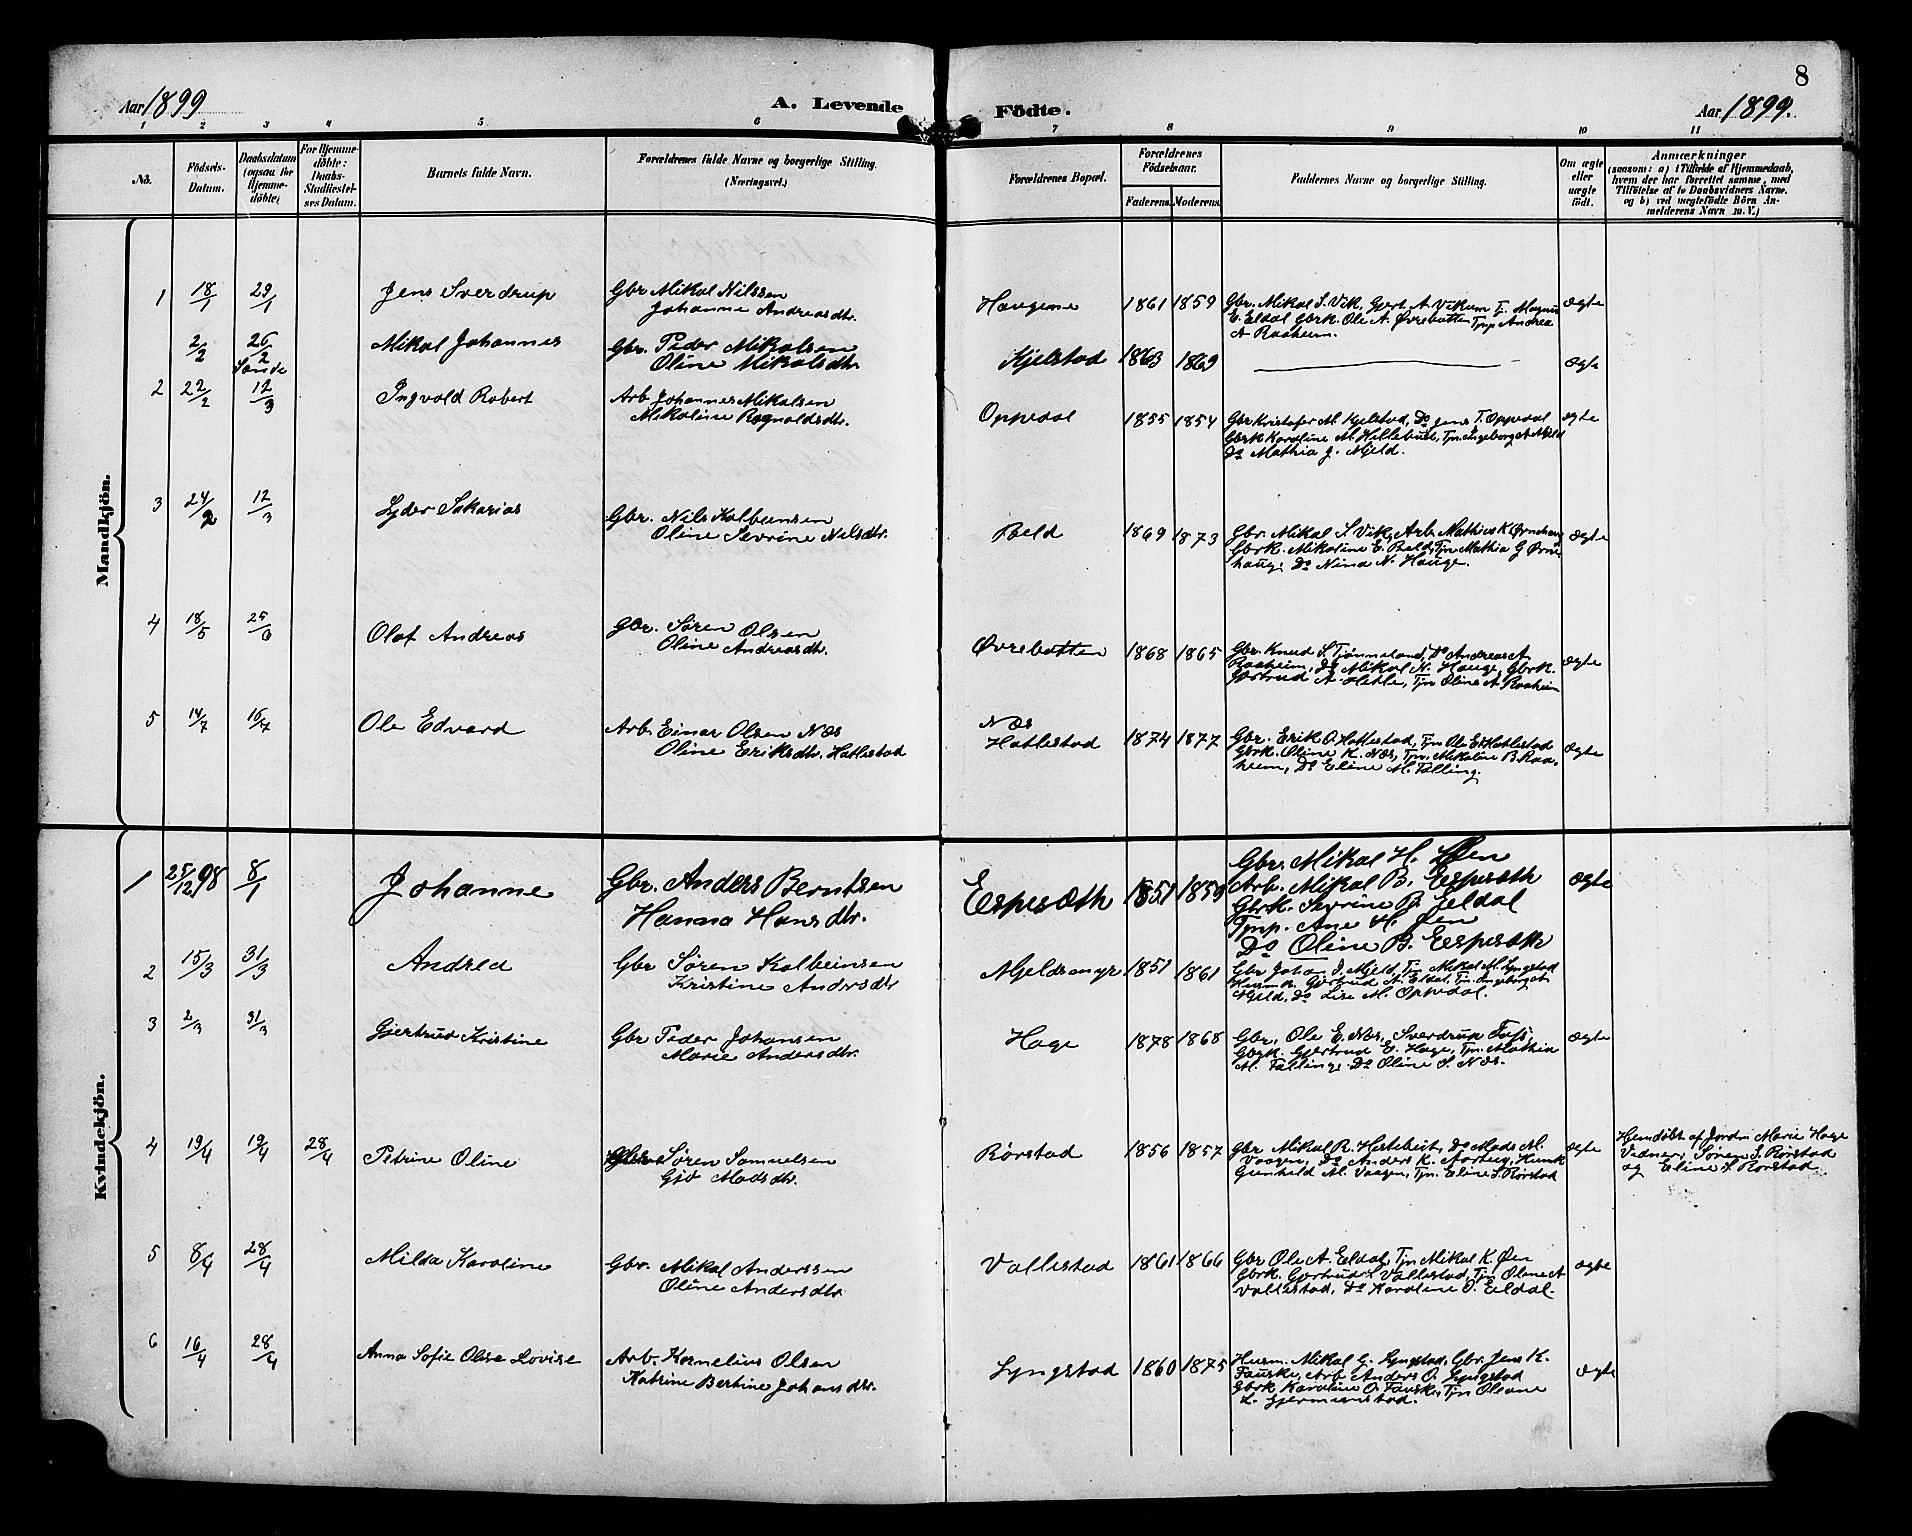 8
Aar 1899
A. Levende
Födte.
Aar 1899.
1 2 3 4 5 6 7 8 9 10 11
No.
Födsels-
Datum.
Daabsdatum
(ogsaa for
Hjemme-
døbte)
For Hjemme-
døbte:
Daabs-
Stadfæstel-
ses Datum.
Barnets fulde Navn.
Forældrenes fulde Navne og borgerlige Stilling.
(Næringsvei.)
Forældrenes Bopæl.
Forældrenes
Födselsaar.
Faderens.
Moderens.
Faddernes Navne og borgerlige Stilling.
Om ægte
eller
uægte
födt.
Anmærkninger
(saasom: a) i Tilfælde af Hjemmedaab,
hvem der har forrettet samme, med
Tilföielse af to Daabsvidners Navne.
og b) ved uægtefödte Börn An-
melderens Navn m. V.)
Mandkjön.
1 18/1 29/1 Jens Sverdrup
Gbr Mikal Nilssen
Johanne Andreasdtr.
Haugene 1861 1859
Gbr. Mikal S. Vik, Gjert A. Vikum T. Magnus
E. Eldal Gbrk. Ole A. Øvrebotten Tjnp Andrea
A Raaheim.
ægte
2/2 26/2 Sande Mikal Johannes
Gbr. Peder Mikalsen
Oline Mikalsdtr
Kjelstad 1863 1869
ægte
2 22/2 12/3 Ingvald Robert
Arb Johannes Mikalsen
Mikoline Ragnaldsdtr.
Oppedal 1855 1854
Gbr Kristofer M. Kjelstad, Do Jens T. Oppedal
Gbrk Karoline M. Hellebust, Tjn. Ingeborg A Mjeld
Do Mathia J. Mjeld.
ægte
3 24/2 12/3 Lyder Sakarias
Gbr. Nils Kolbeinsen
Oline Sevrine Nilsdtr.
Beld 1869 1873
Gbr. Mikal S Vik, Arb. Mathias K Ørnehaug
Gbrk. Mikoline E. Beld, Tjn Mathia G Ørne-
haug, Do Nina N. Hauge.
ægte
4 18/5 25/6 Olaf Andreas
Gbr. Søren Olsen
Oline Andreasdtr.
Øvrebotten 1868 1865
Gbr Knud S. Tjønneland, Do Andreas A
Raaheim, Do Mikal N. Hauge, Gbrk.
Gjertrud A. Hetle, Tjn Oline A Raaheim
ægte
5 14/7 16/7 Ole Edvard
Arb. Einar Olsen Næs
Oline Eriksdtr. Hatlestad
Næs
Hatlestad 1874 1877
Gbr. Erik O. Hatlestad, Tjn Ole E. Hatlestad
Gbrk. Oline K. Næs, Tjn. Mikaline B. Raa-
heim, Do Eline M. Talling.
ægte
Kvindekjön.
1 25/12 98 8/1 Johanne
Gbr. Anders Berntsen
Hanna Hansdtr.
Espesæth 1851 1859
Gbr. Mikal H. Øen
Arb. Mikal B. Espesæth
Gbrk. Sevrine B. Eeldal
Tjnp. Ane H. Øen
Do Oline B. Espesæth
ægte
2 15/3 31/3 Andrea
Gbr Søren Kolbeinsen
Kristine Andersdtr
Mjeldsmyr 1851 1861
Gbr Johan J. Mjeld, Tjn Mikal M. Lyngstad
Husmk. Gjertrud A. Eldal, Tjn. Ingeborg A
Mjeld, Do Lise M. Oppedal.
3 2/3 31/3 Gjertrud Kristine
Gbr Peder Johansen
Marie Andersdtr.
Hage 1878 1868
Gbr, Ole E. Næs, Sverdrup
Gbrk. Gjertrud E. Hage, Tjn. Mathia
M. Talling, Do Oline S. Næs.
ægte
4 19/4 19/4 28/4 Petrine Oline
Søren Samuelsen
Madsdtr.
Rørstad 1856 1857
Gbr Mikal R. Hestebeit, Do Mads M.
Vaagen, Do Anders K. Aarberg, Husmk
Gunhild M. Vaagen, Tjn. Eline S. Rørstad
ægte
Hjemdøbt af Jordm Marie Hage
Vidner, Søren S. Rørstad
og Eline S. Rørstad
5 8/4 28/4 Milda Karoline
Gbr. Mikal Anderssen
Oline Andersdtr
Vallestad 1861 1866
Gbr Ole A. Eeldal, Tjn Mikal K. Øen
Gbrk. Gjertrud L Vallestad, Tjn Oline A
Vallestad, Do Karoline O. Eeldal.
ægte
6 16/4 28/4 Anna Sofie Oline Lovise
Arb. Kornelius Olsen
Katrine Bertine Johansdtr.
Lyngstad 1860 1875
Husm. Mikal G. Lyngstad, Gbr. Jens K.
Fauske, Arb Anders O. Lyngstad
Gbrk Karoline O. Fausk, Tjn Oline
L. Gjermundstad.
ægte